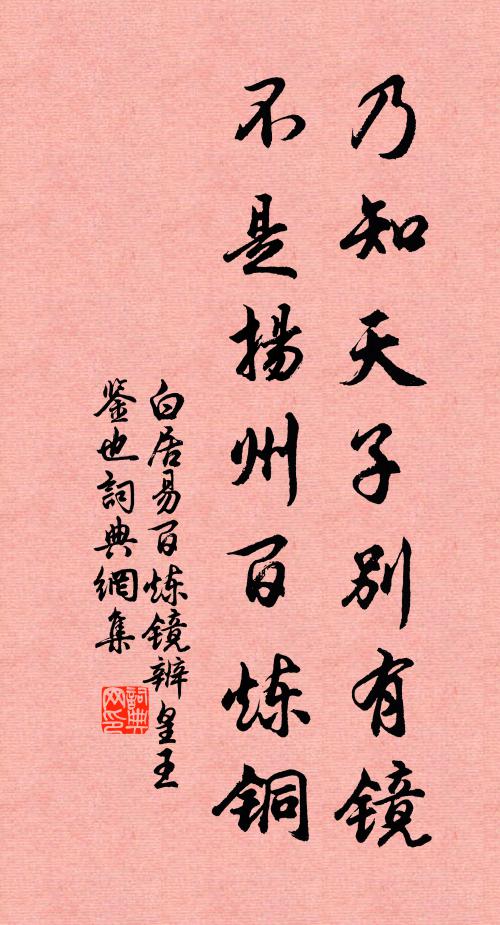 乃知天子别有镜
不是揚州百炼铜
白居易百炼镜辨皇王
鉴也詞典網集
詞典网印